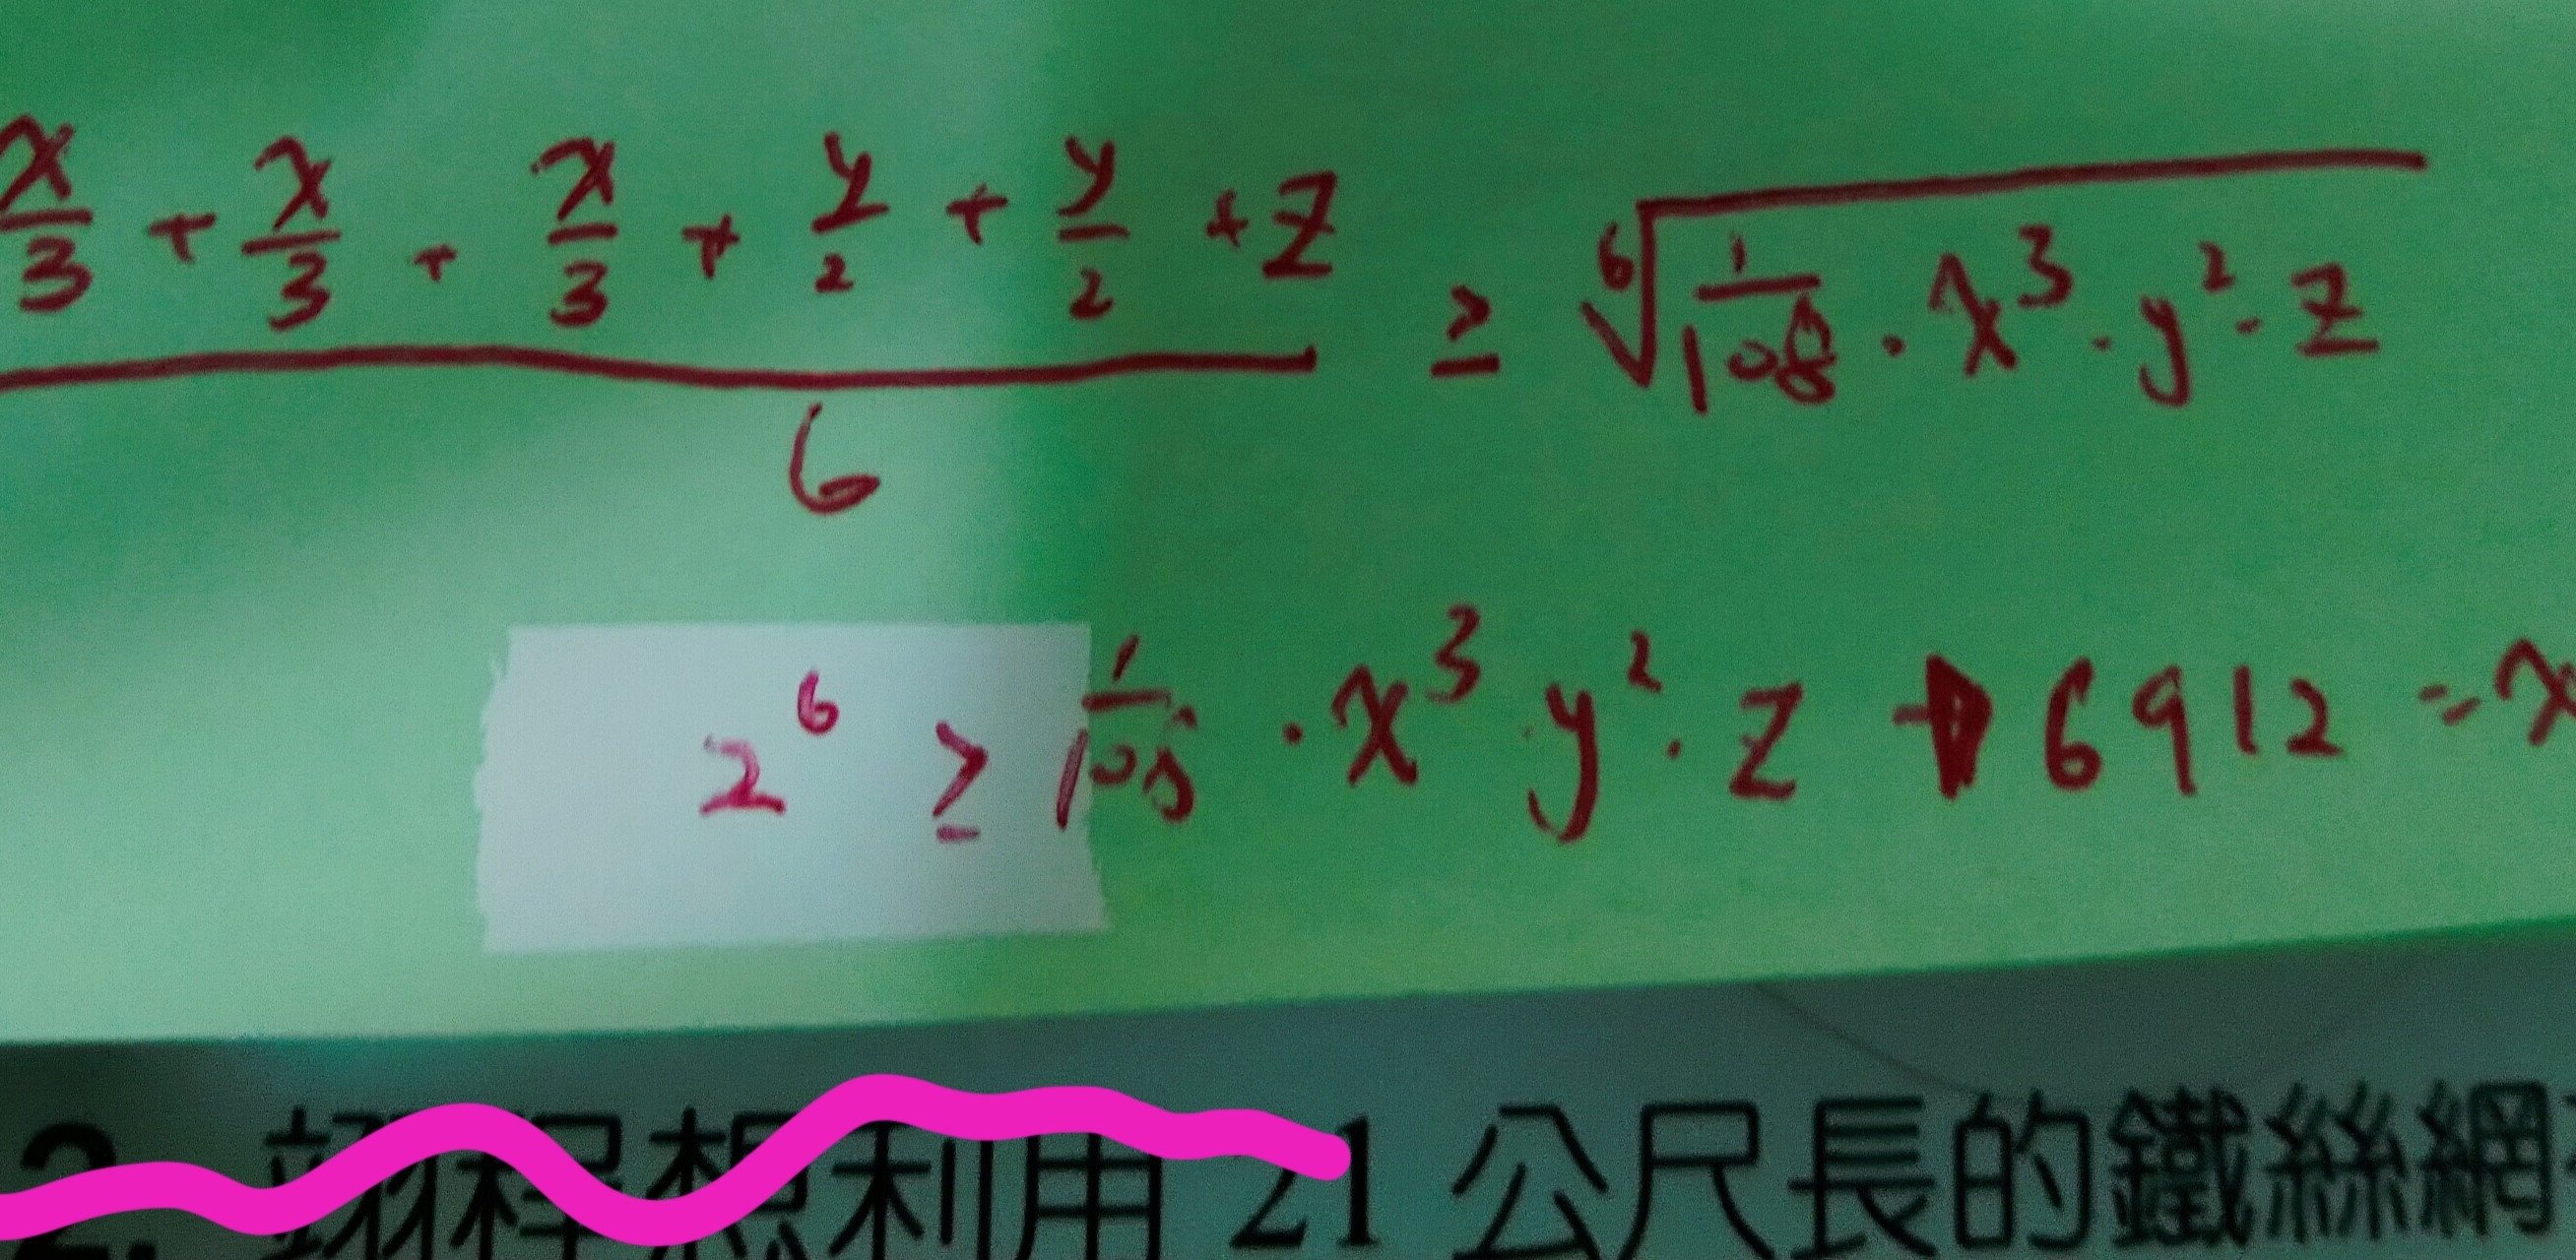 x/3 + x/3 + x/3 + y/2 + y/2 + z / 6 ≥ ⁶√(1/108 · x³ · y² · z)
2⁶ ≥ 1/108 · x³ y² · z → 6912 = x
2. 翊程想利用 21 公尺長的鐵絲網